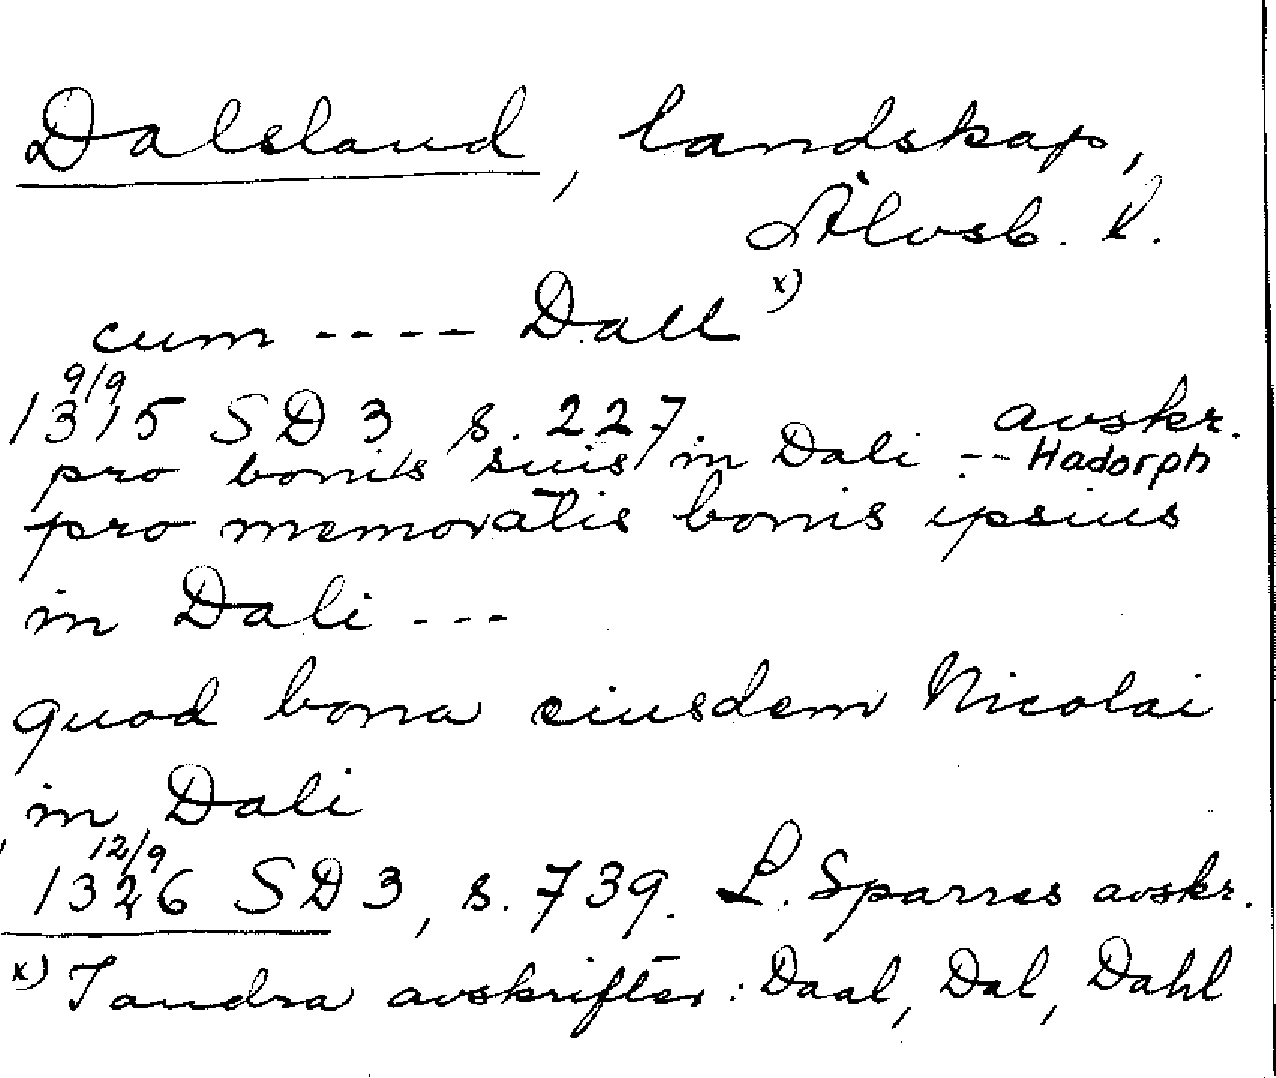 Dalsland, landskap,
Älvsb. l.
cum ---- Dall x)
9/9
1315 SD 3 s. 227. avskr.
pro bonis suis in Dali -- Hadorph
pro memoratis bonis ipsius
in Dali ---
quod bona eiusdem Nicolai
in Dali
12/9
1326 SD 3, s. 739. L. Sparres avskr.
x) I andra avskrifter: Daal, Dal, Dahl